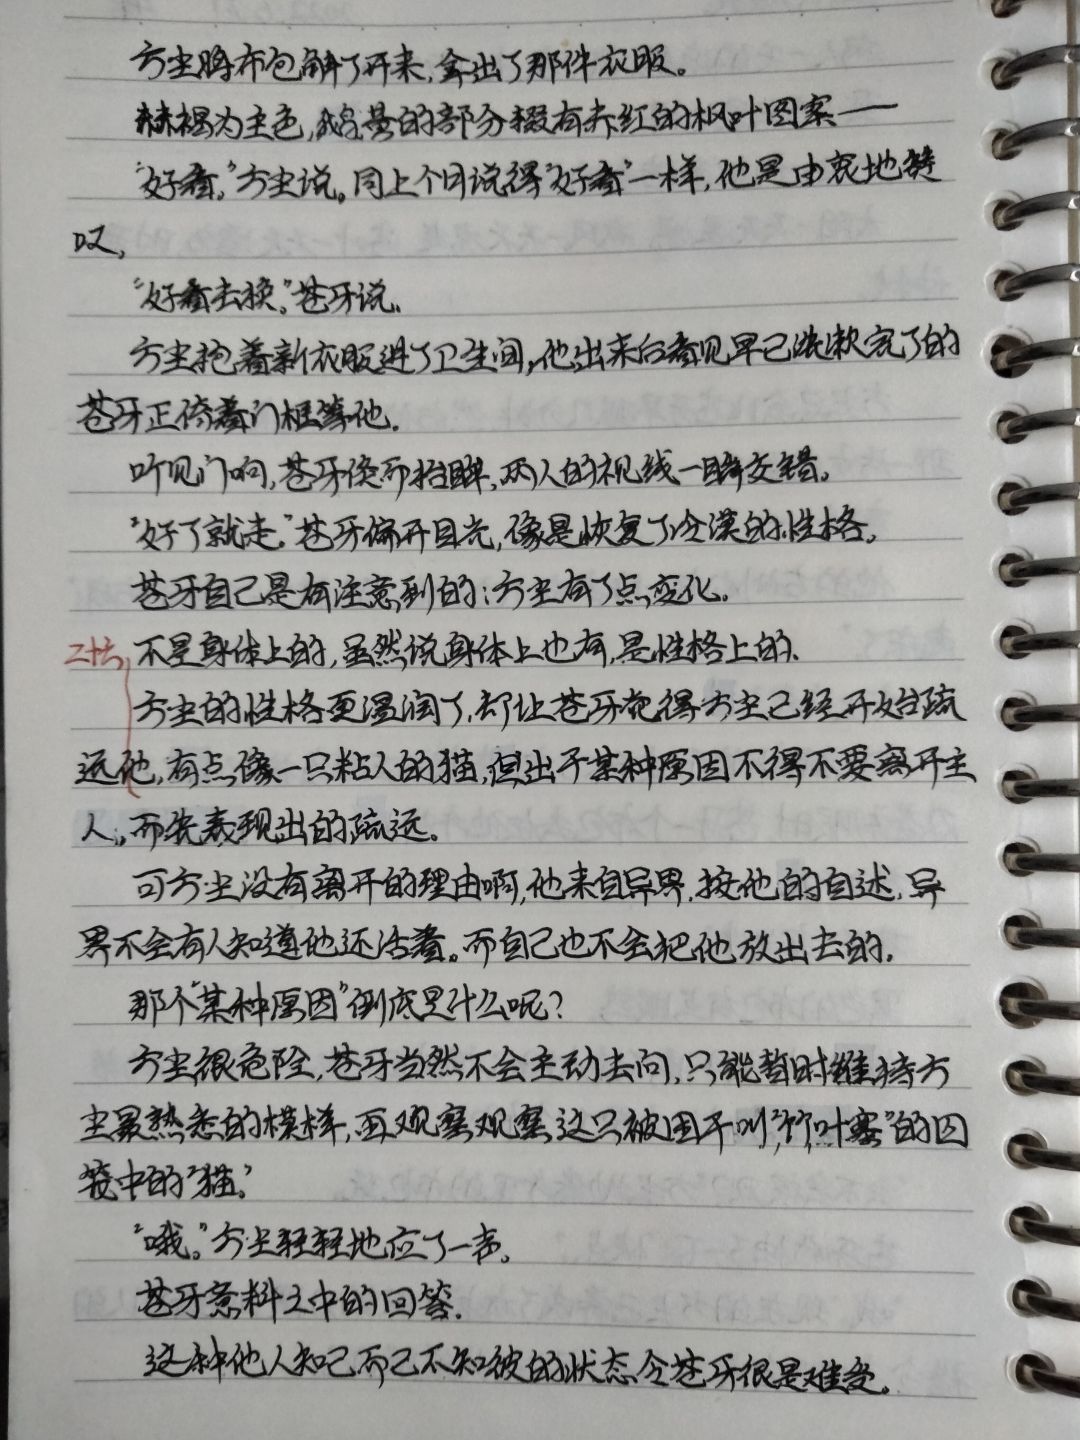 方尘将布包解了开来,拿出了那件衣服。
赭褐为主色,的部分缀有赤红的枫叶图案——
“好看。”方尘说。同上个月说得“好看”一样,他是由衷地赞
叹,
“好看去换。”苍牙说.
方尘抱着新衣服进了卫生间,他出来后看见早已洗漱完了的
苍牙正倚着门框等他.
听见门响,苍牙倏而抬眸,两人的视线一瞬交错。
“好了就走。”苍牙偏开目光,像是恢复了冷漠的性格。
苍牙自己是有注意到的:方尘有了点变化.
二十六 不是身体上的,虽然说身体上也有,是性格上的.
方尘的性格更温润了,却让苍牙觉得方尘已经开始疏
远他,有点像一只粘人的猫,但出于某种原因不得不要离开主
人。而先表现出的疏远。
可方尘没有离开的理由啊,他来自异界.按他的自述,异
界不会有人知道他还活着。而自己也不会把他放出去的.
那个“某种原因”倒底是什么呢?
方尘很危险,苍牙当然不会主动去问,只能暂时维持方
尘最熟悉的模样,再观察观察这只被困于叫“竹叶寨”的囚
笼中的“猫。”
“哦。”方尘轻轻地应了一声。
苍牙意料之中的回答.
这种他人知己而己不知彼的状态令苍牙很是难受。